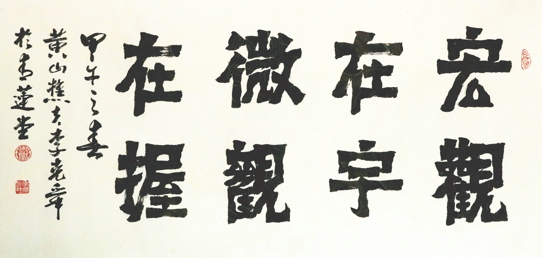 宏觀
在宇
微觀
在握
甲午之春
黄山樵夫李堯章
於青蓮堂